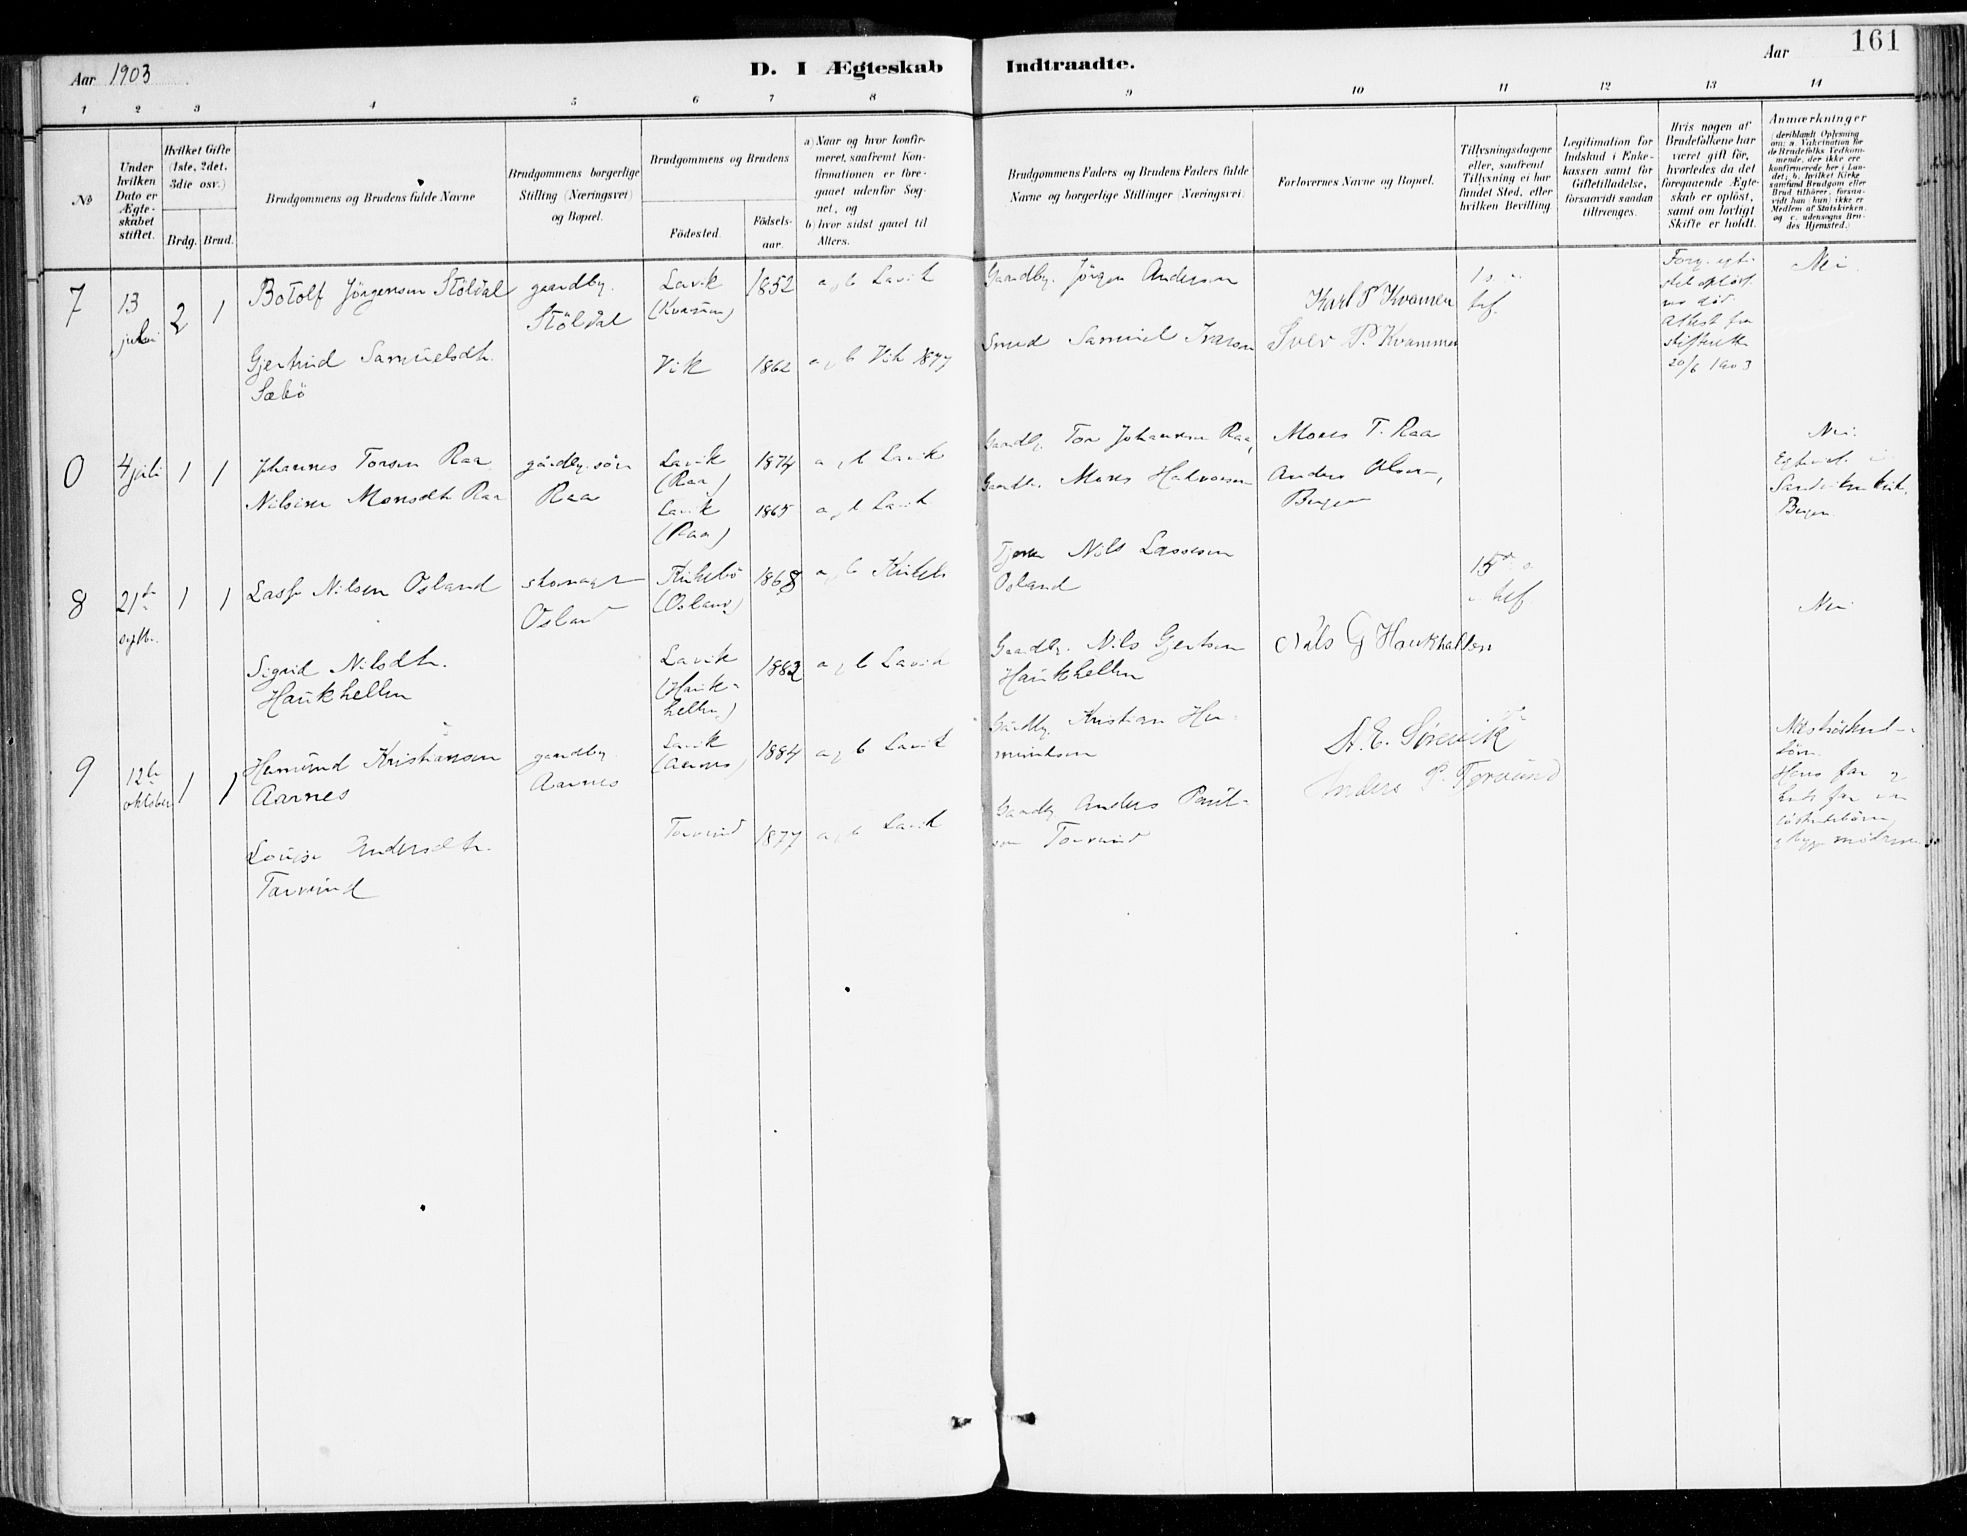 161
Aar 1903
D. I Ægteskab Indtraadte.
Aar
1 2 3 4 5 6 7 8 9 10 11 12 13 14
№
Under hvilken Dato er Ægteskabet stiftet.
Hvilket Gifte (1ste, 2det, 3die osv.)
Brdg. Brud.
Brudgommens og Brudens fulde Navne
Brudgommens borgerlige Stilling (Næringsvei) og Bopæl.
Brudgommens og Brudens
Födested.
Födsels-aar.
a) Naar og hvor konfirmeret, saafremt Konfirmationen er foregaaet udenfor Sognet, og
b) hvor sidst gaaet til Alters.
Brudgommens Faders og Brudens Faders fulde Navne og borgerlige Stillinger (Næringsvei).
Forlovernes Navne og Bopæl.
Tillysningsdagene eller, saafremt Tillysning ei har fundet Sted, efter hvilken Bevilling.
Legitimation for Indskud i Enkekassen samt for Giftetilladelse, forsaavidt saadan tiltrænges.
Hvis nogen af Brudefolkene har været gift för, hvorledes da det foregaaende Ægteskab er oplöst, samt om lovligt Skifte er holdt.
Anmærkninger
7 13 juli 2 1
Botolf Jörgensen Stöldal
gaardbr. Stöldal
Lavik
1852
a, b Lavik
Gaardbr. Jörgen Anderson
Karl P Kvamen
Nei
Gjertrud Samuelsdtr.
Sæbö
Vik 1862
a, b Vik 1877
Smed Samuel Ivarson
Iver P. Kvammen
20/6 1903
0 4 juli 1 1
Johannes Torsen Raa
gårdbr. sön
Raa
Lavik
(Raa)
1874
a, b Lavik
Gaardbr. Tor Johannesen Raa,
Mons T. Raa
Nei.
Nilsine Monsdtr. Raa
Lavik
(Raa)
1865
a, b Lavik
Gaardbr. Mons Halvorsen
Anders Olsen,
Bergen
Bergen
8 21de septbr. 1 1
Lasse Nilsen Osland
skomager
Osland
Kirkebö
(Osland)
1868
a, b Kirkeb
Nils Lassesen
Osland
15de
Nei
Sigrid Nilsdtr.
Haukhellen
Lavik
(Hauk-
hellen)
1882
a, b Lavik
Gaardbr. Nils Gjertsen
Haukhellen
Nils G Haukhallen
9 12te oktober 1 1
Hermund Kristiansen
Aarnes
gaardbr.
Aarnes
Lavik
(Aarnes)
1884
a, b Lavik
Gaardbr. Kristian Her-
mundsen
A. E. Sörevik
Louise Andersdtr.
Torvund
Torvund
1877
a, b Lavik
Gaardbr. Anders Paul-
son Torvund
Anders P. Torvund